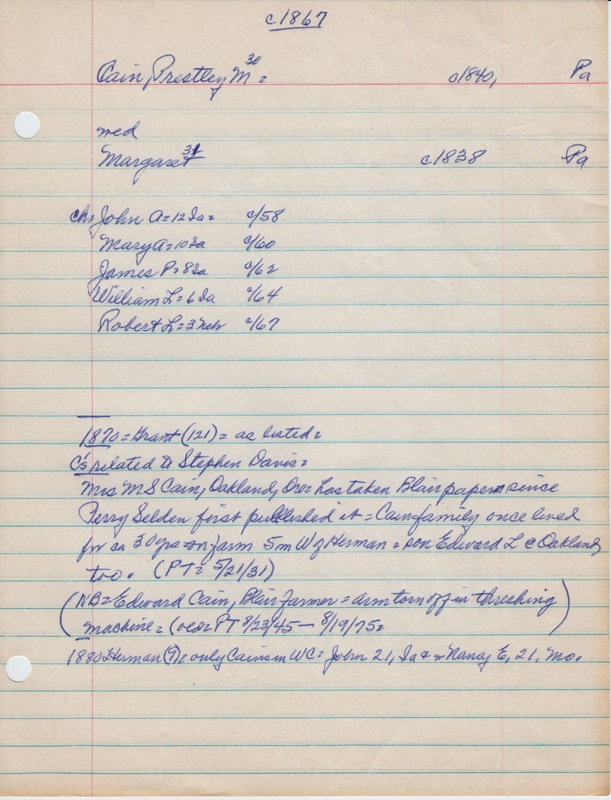 c1867
Cain, Prestley M 30 = c1840, Pa
med
Margaret 31 c1838 Pa
ch= John A=12 Ia= c/58
Mary A=10 Ia c/60
James P=8 Ia c/62
William L=6 Ia c/64
Robert L=3 Neb c/67
1870=Grant (121)= as listed=
C's related to Stephen Davis=
Mrs M S Cain, Oakland, Ore= has taken Blair papers since
Perry Selden first published it = Cain family once lived
for ca 30 yrs on farm 5m W of Herman = son Edward L @ Oakland
too. (PT= 5/21/31)
(NB= Edward Cain, Blair farmer = arm torn off in threshing
machine = PT 8/23/45 — 8/19/75=
1880 Herman (7)= only Cains in WC= John 21, Ia & Nancy E, 21, Mo.